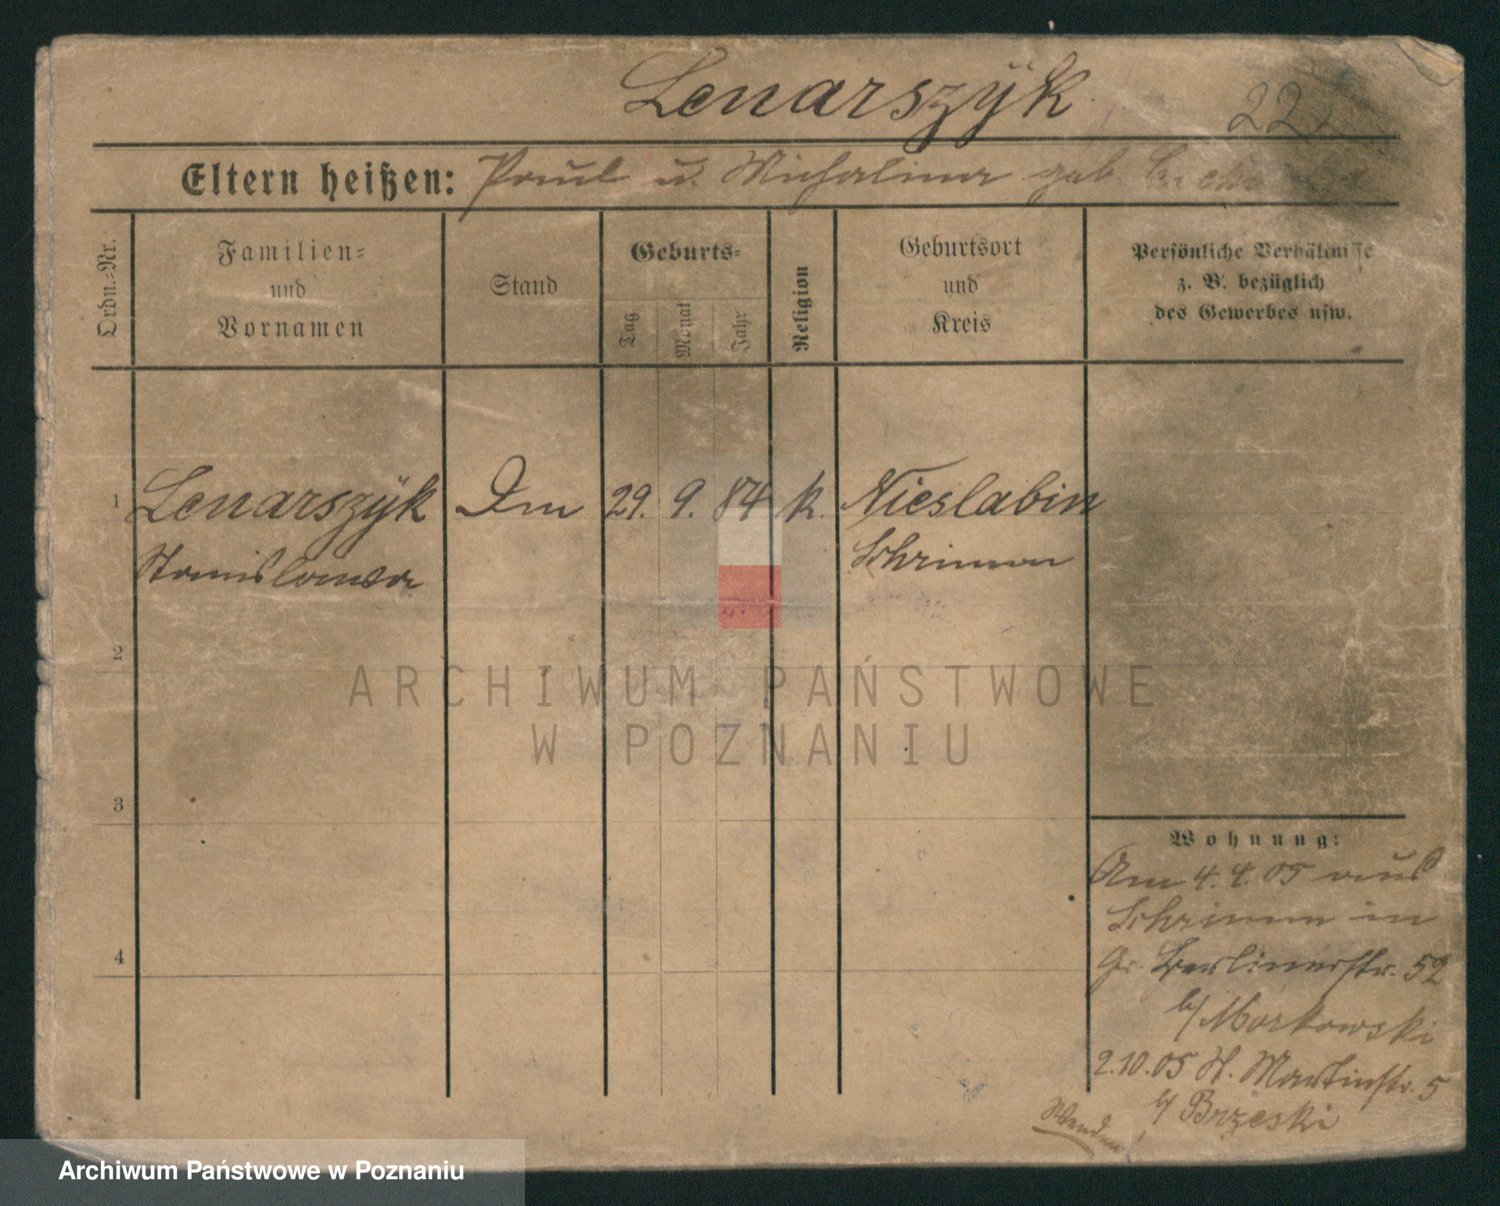 Lenarszÿk
22
Eltern heißen: Paul u. Michalina geb.
Ordn.-Nr.
Familien-
und
Vornamen
Stand
Geburts-
Tag
Monat
Jahr
Religion
Geburtsort
und
Kreis
Persönliche Verhältnisse
z. B. bezüglich
des Gewerbes usw.
1 Lenarszÿk Dm 29. 9. 84 k. Nieslabin
Stanislawa Schrimm
2
ARCHIWUM PAŃSTWOWE
W POZNANIU
3
4
Wohnung:
Am 4.4.05 aus
Schrimm in
Gr. Berlinerstr. 52
b/ Markowski
2.10.05 St. Martinstr. 5
b/ Brzeski
Wenden
Archiwum Państwowe w Poznaniu